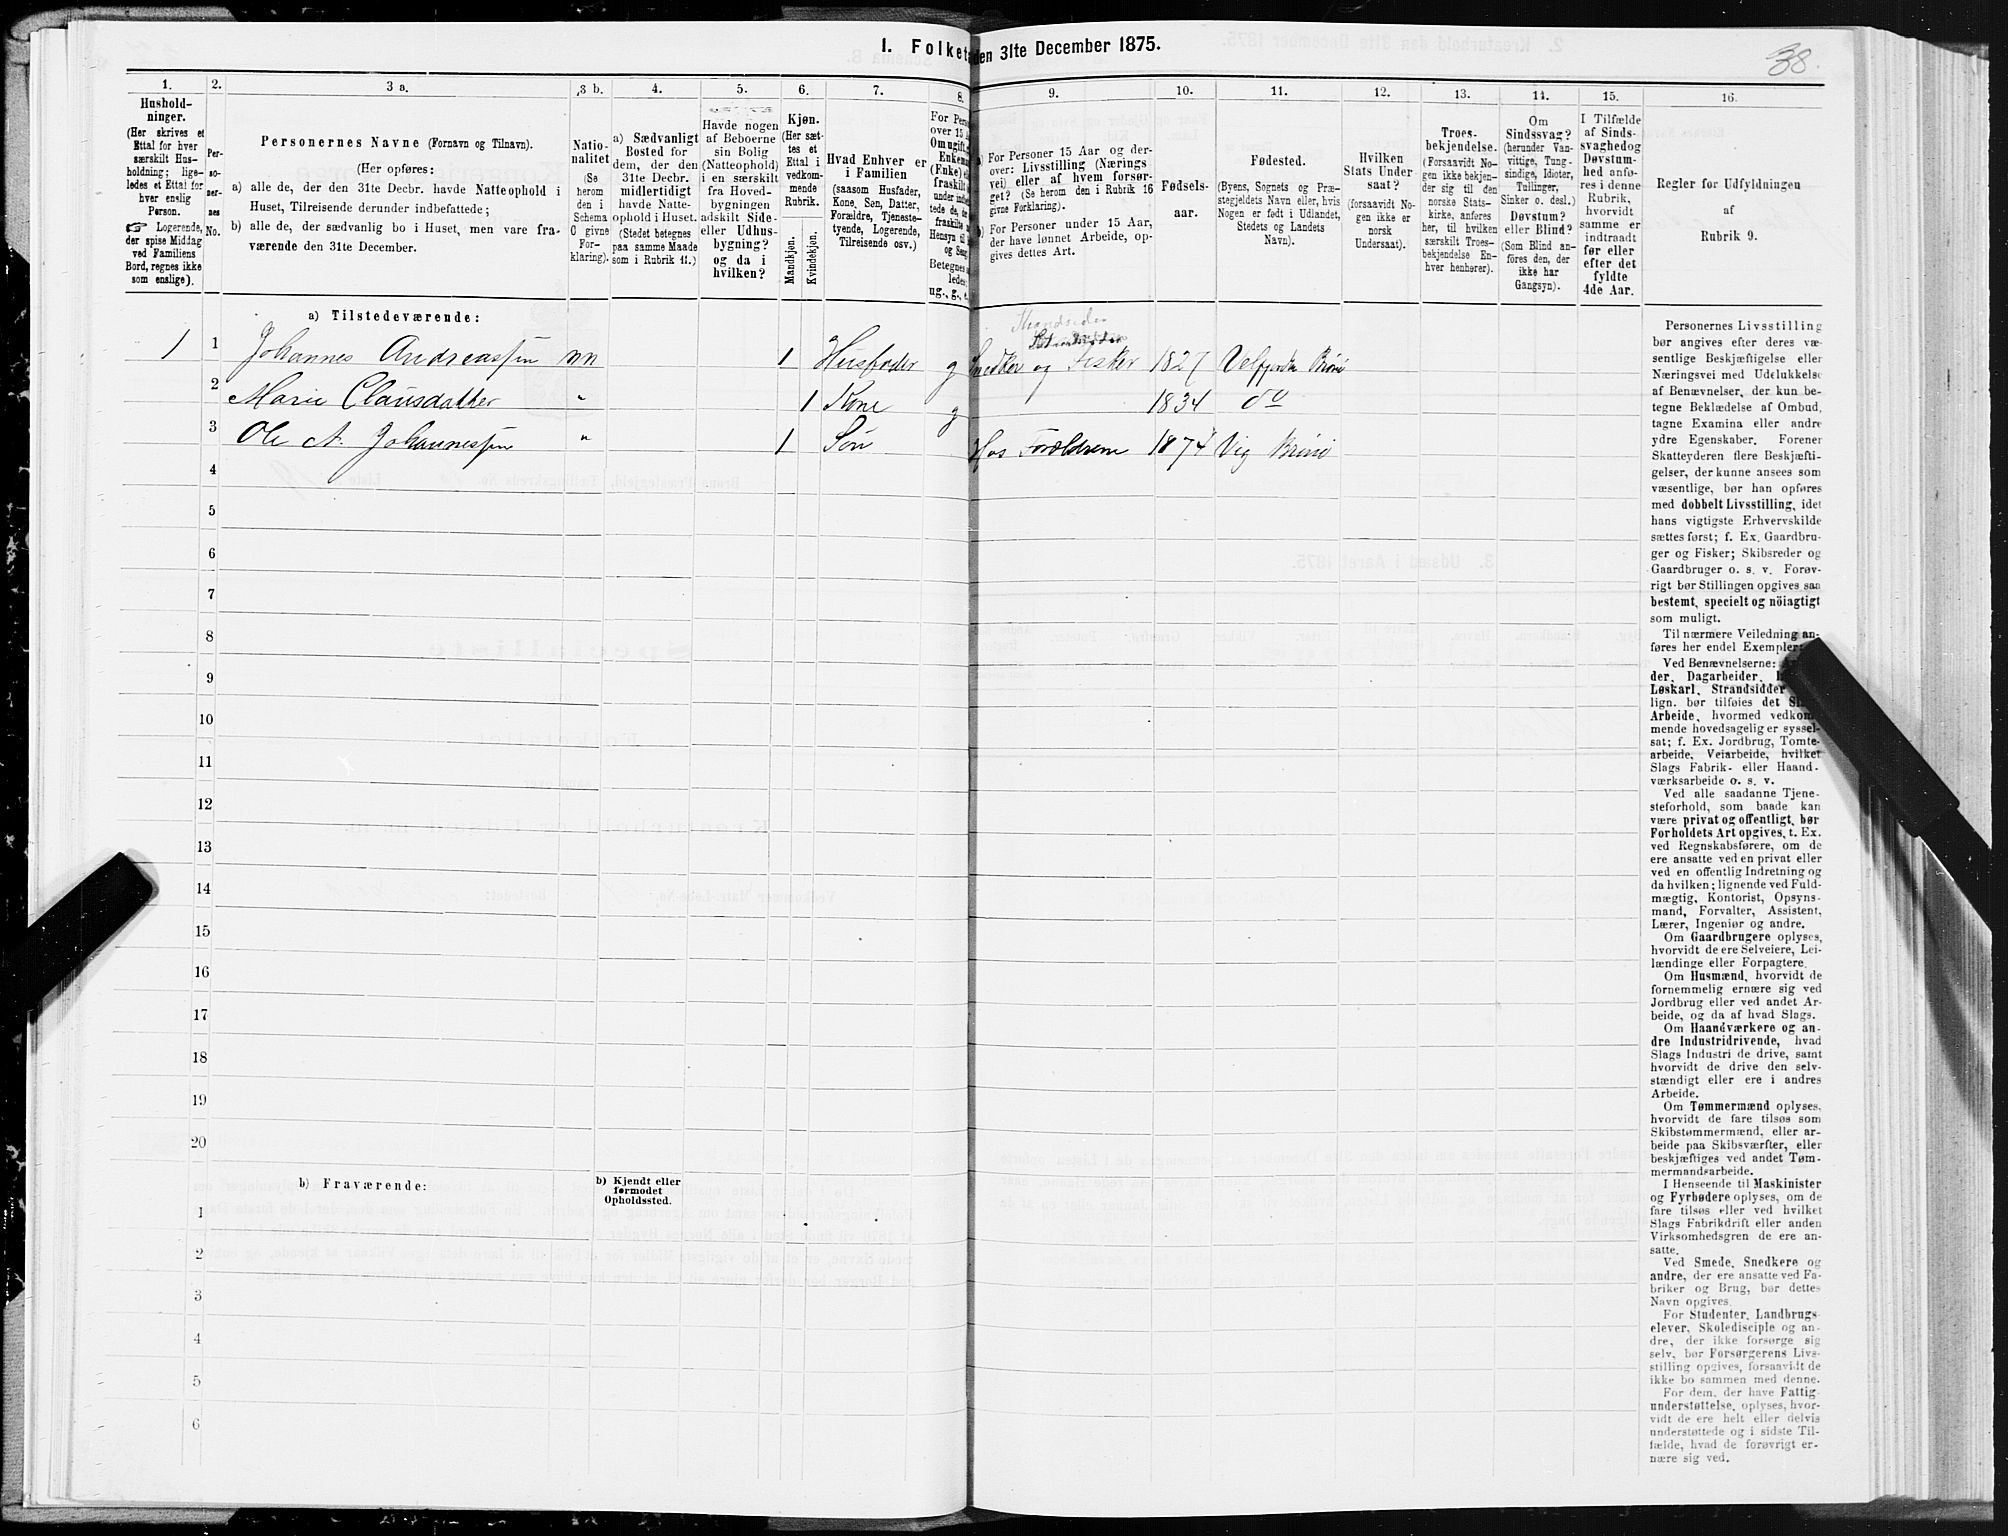 38.
1. Folketa den 31te December 1875.
1. 2. 3 a. 3 b. 4. 5. 6. 7. 8. 9. 10. 11. 12. 13. 14. 15. 16.
Hushold-
ninger.
(Her skrives et
Ettal for hver
særskilt Hus-
holdning; lige-
ledes et Ettal for
hver enslig
Person.
☞ Logerende,
der spise Middag
ved Familiens
Bord, regnes ikke
som enslige).
Per-
so-
ner-
nes
No.
Personernes Navne (Fornavn og Tilnavn).
(Her opføres:
a) alle de, der den 31te Decbr. havde Natteophold i
Huset, Tilreisende derunder indbefattede;
b) alle de, der sædvanlig bo i Huset, men vare fra-
værende den 31te December.
Natio-
nalitet
(Se
herom
den i
Schema
C givne
For-
klaring).
a) Sædvanligt
Bosted for
dem, der den
31te Decbr.
midlertidigt
havde Natte-
ophold i Huset.
(Stedet betegnes
paa samme Maade
som i Rubrik 11.)
Havde nogen
af Beboerne
sin Bolig
(Natteophold)
i en særskilt
fra Hoved-
bygningen
adskilt Side-
eller Udhus-
bygning?
og da i
hvilken?
Kjøn.
(Her sæt-
tes et
Ettal i
vedkom-
mende
Rubrik.
Mandkjøn.
Kvindekjøn.
Hvad Enhver er
i Familien
(saasom Husfader,
Kone, Søn, Datter,
Forældre, Tjeneste-
tyende, Logerende,
Tilreisende osv.)
For Pers
over 15 A
Om ugift, g
Enkem
(Enke) e
fraskilt
under indbe
tede de, d
fraskilte
Hensyn til
og Seng
Betegnes s
ledes:
ug., g., e.
a) For Personer 15 Aar og der-
over: Livsstilling (Nærings
vei) eller af hvem forsør-
get? (Se herom den i Rubrik 16
givne Forklaring).
b) For Personer under 15 Aar,
der have lønnet Arbeide, op-
gives dettes Art.
Fødsels-
aar.
Fødested.
(Byens, Sognets og Præ-
stegjeldets Navn eller, hvis
Nogen er født i Udlandet,
Stedets og Landets
Navn).
Hvilken
Stats Under
saat?
(forsaavidt No-
gen ikke er
norsk
Undersaat).
Troes-
bekjendelse.
(Forsaavidt No-
gen ikke bekjen-
der sig til den
norske Stats-
kirke, anføres
her, til hvilken
særskilt Troes-
bekjendelse En-
hver henhører).
Om
Sindssvag?
(herunder Van-
vittige, Tung-
sindige, Idioter,
Tullinger,
Sinker o. desl.)
Døvstum?
eller Blind?
(Som Blind an-
føres den, der
ikke har
Gangsyn).
I Tilfælde
af Sinds-
svaghedog
Døvstum-
hed anfø-
res i denne
Rubrik,
hvorvidt
samme er
indtraadt
før eller
efter det
fyldte
4de Aar.
Regler for Udfyldningen
af
Rubrik 9.
a) Tilstedeværende:
Strandsidder
1 1 Johannes Andreassen nn 1 Husfader g Snedker og Fisker 1827 Velfjorden Brønø
2 Marie Clausdatter " 1 Kone g 1834 do
3 Ole A. Johannessen " 1 Søn Hos Forældrene 1874 Vig Brønø
4
5
6
7
8
9
10
11
12
13
14
15
16
17
18
19
20
b) Fraværende:
b) Kjendt eller
formodet
Opholdssted.
1
2
3
4
5
6
Personernes Livsstilling
bør angives efter deres væ-
sentlige Beskjæftigelse eller
Næringsvei med Udelukkelse
af Benævnelser, der kun be-
tegne Beklædelse af Ombud,
tagne Examina eller andre
ydre Egenskaber. Forener
Skatteyderen flere Beskjæfti-
gelser, der kunne ansees som
væsentlige, bør han opføres
med dobbelt Livsstilling, idet
hans vigtigste Erhvervskilde
sættes først; f. Ex. Gaardbru-
ger og Fisker; Skibsreder og
Gaardbruger o. s. v. Forøv-
rigt bør Stillingen opgives saa
bestemt, specielt og nöiagtigt
som muligt.
Til nærmere Veiledning an-
føres her endel Exempler:
Ved Benævnelserne:
der, Dagarbeider,
Løskarl, Strandsidder
lign. bør tilføies det
Arbeide, hvormed vedkom-
mende hovedsagelig er syssel-
sat; f. Ex. Jordbrug, Tomte-
arbeide, Veiarbeide, hvilket
Slags Fabrik- eller Haand-
værksarbeide o. s. v.
Ved alle saadanne Tjene-
steforhold, som baade kan
være privat og offentligt, bør
Forholdets Art opgives, t. Ex.
ved Regnskabsførere, om de
ere ansatte ved en privat eller
ved en offentlig Indretning og
da hvilken; lignende ved Fuld-
mægtig, Kontorist, Opsyns-
mand, Forvalter, Assistent,
Lærer, Ingeniør og andre.
Om Gaardbrugere oplyses,
hvorvidt de ere Selveiere, Lei-
lændinge eller Forpagtere.
Om Husmænd, hvorvidt de
fornemmelig ernære sig ved
Jordbrug eller ved andet Ar-
beide, og da af hvad Slags.
Om Haandværkere og an-
dre Industridrivende, hvad
Slags Industri de drive, samt
hvorvidt de drive den selv-
stændigt eller ere i andres
Arbeide.
Om Tømmermænd oplyses,
hvorvidt de fare tilsøs som
Skibstømmermænd, eller ar-
beide paa Skibsværfter, eller
beskjæftiges ved andet Tøm-
mermandsarbeide.
I Henseende til Maskinister
og Fyrbødere oplyses, om de
fare tilsøs eller ved hvilket
Slags Fabrikdrift eller anden
Virksomhedsgren de ere an-
satte.
Ved Smede, Snedkere og
andre, der ere ansatte ved Fa-
briker og Brug, bør dettes
Navn opgives.
For Studenter, Landbrugs-
elever, Skoledisciple og an-
dre, der ikke forsørge sig
selv, bør Forsørgerens Livs-
stilling opgives, forsaavidt de
ikke bo sammen med denne.
For dem, der have Fattig-
understøttelse, oplyses, hvor-
vidt de ere helt eller delvis
understøttede og i sidste Til-
fælde, hvad de forøvrigt er-
nære sig ved.